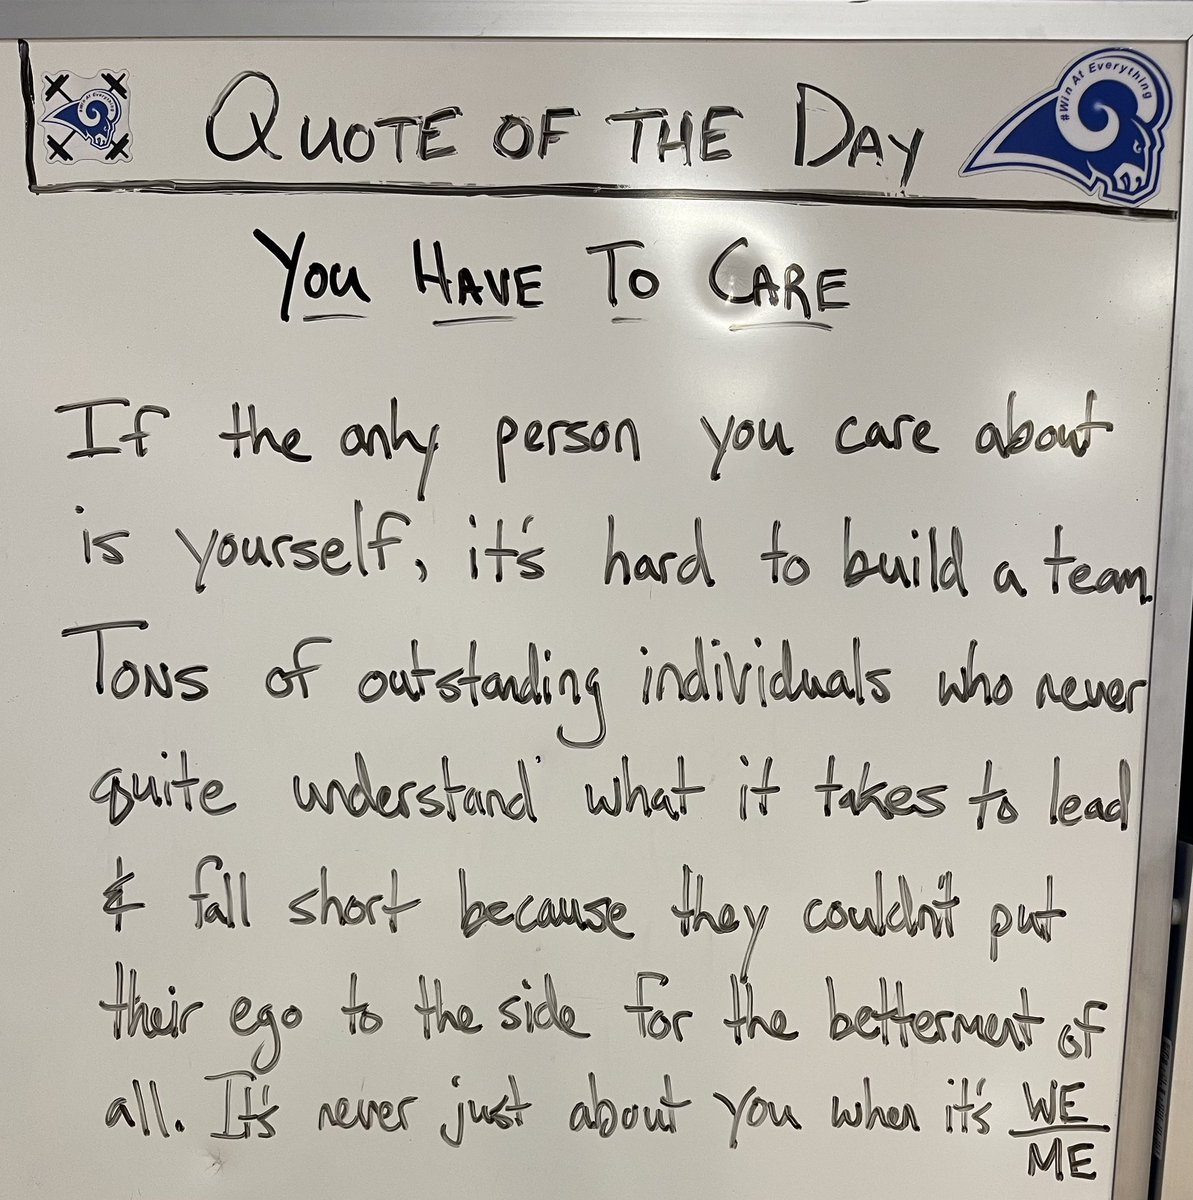 QUOTE OF THE DAY
#Win At Everything
#Win At Everything
YOU HAVE TO CARE
If the only person you care about
is yourself, it's hard to build a team.
Tons of outstanding individuals who never
quite understand what it takes to lead
& fall short because they couldn't put
their ego to the side for the betterment of
all. It's never just about you when it's WE
ME